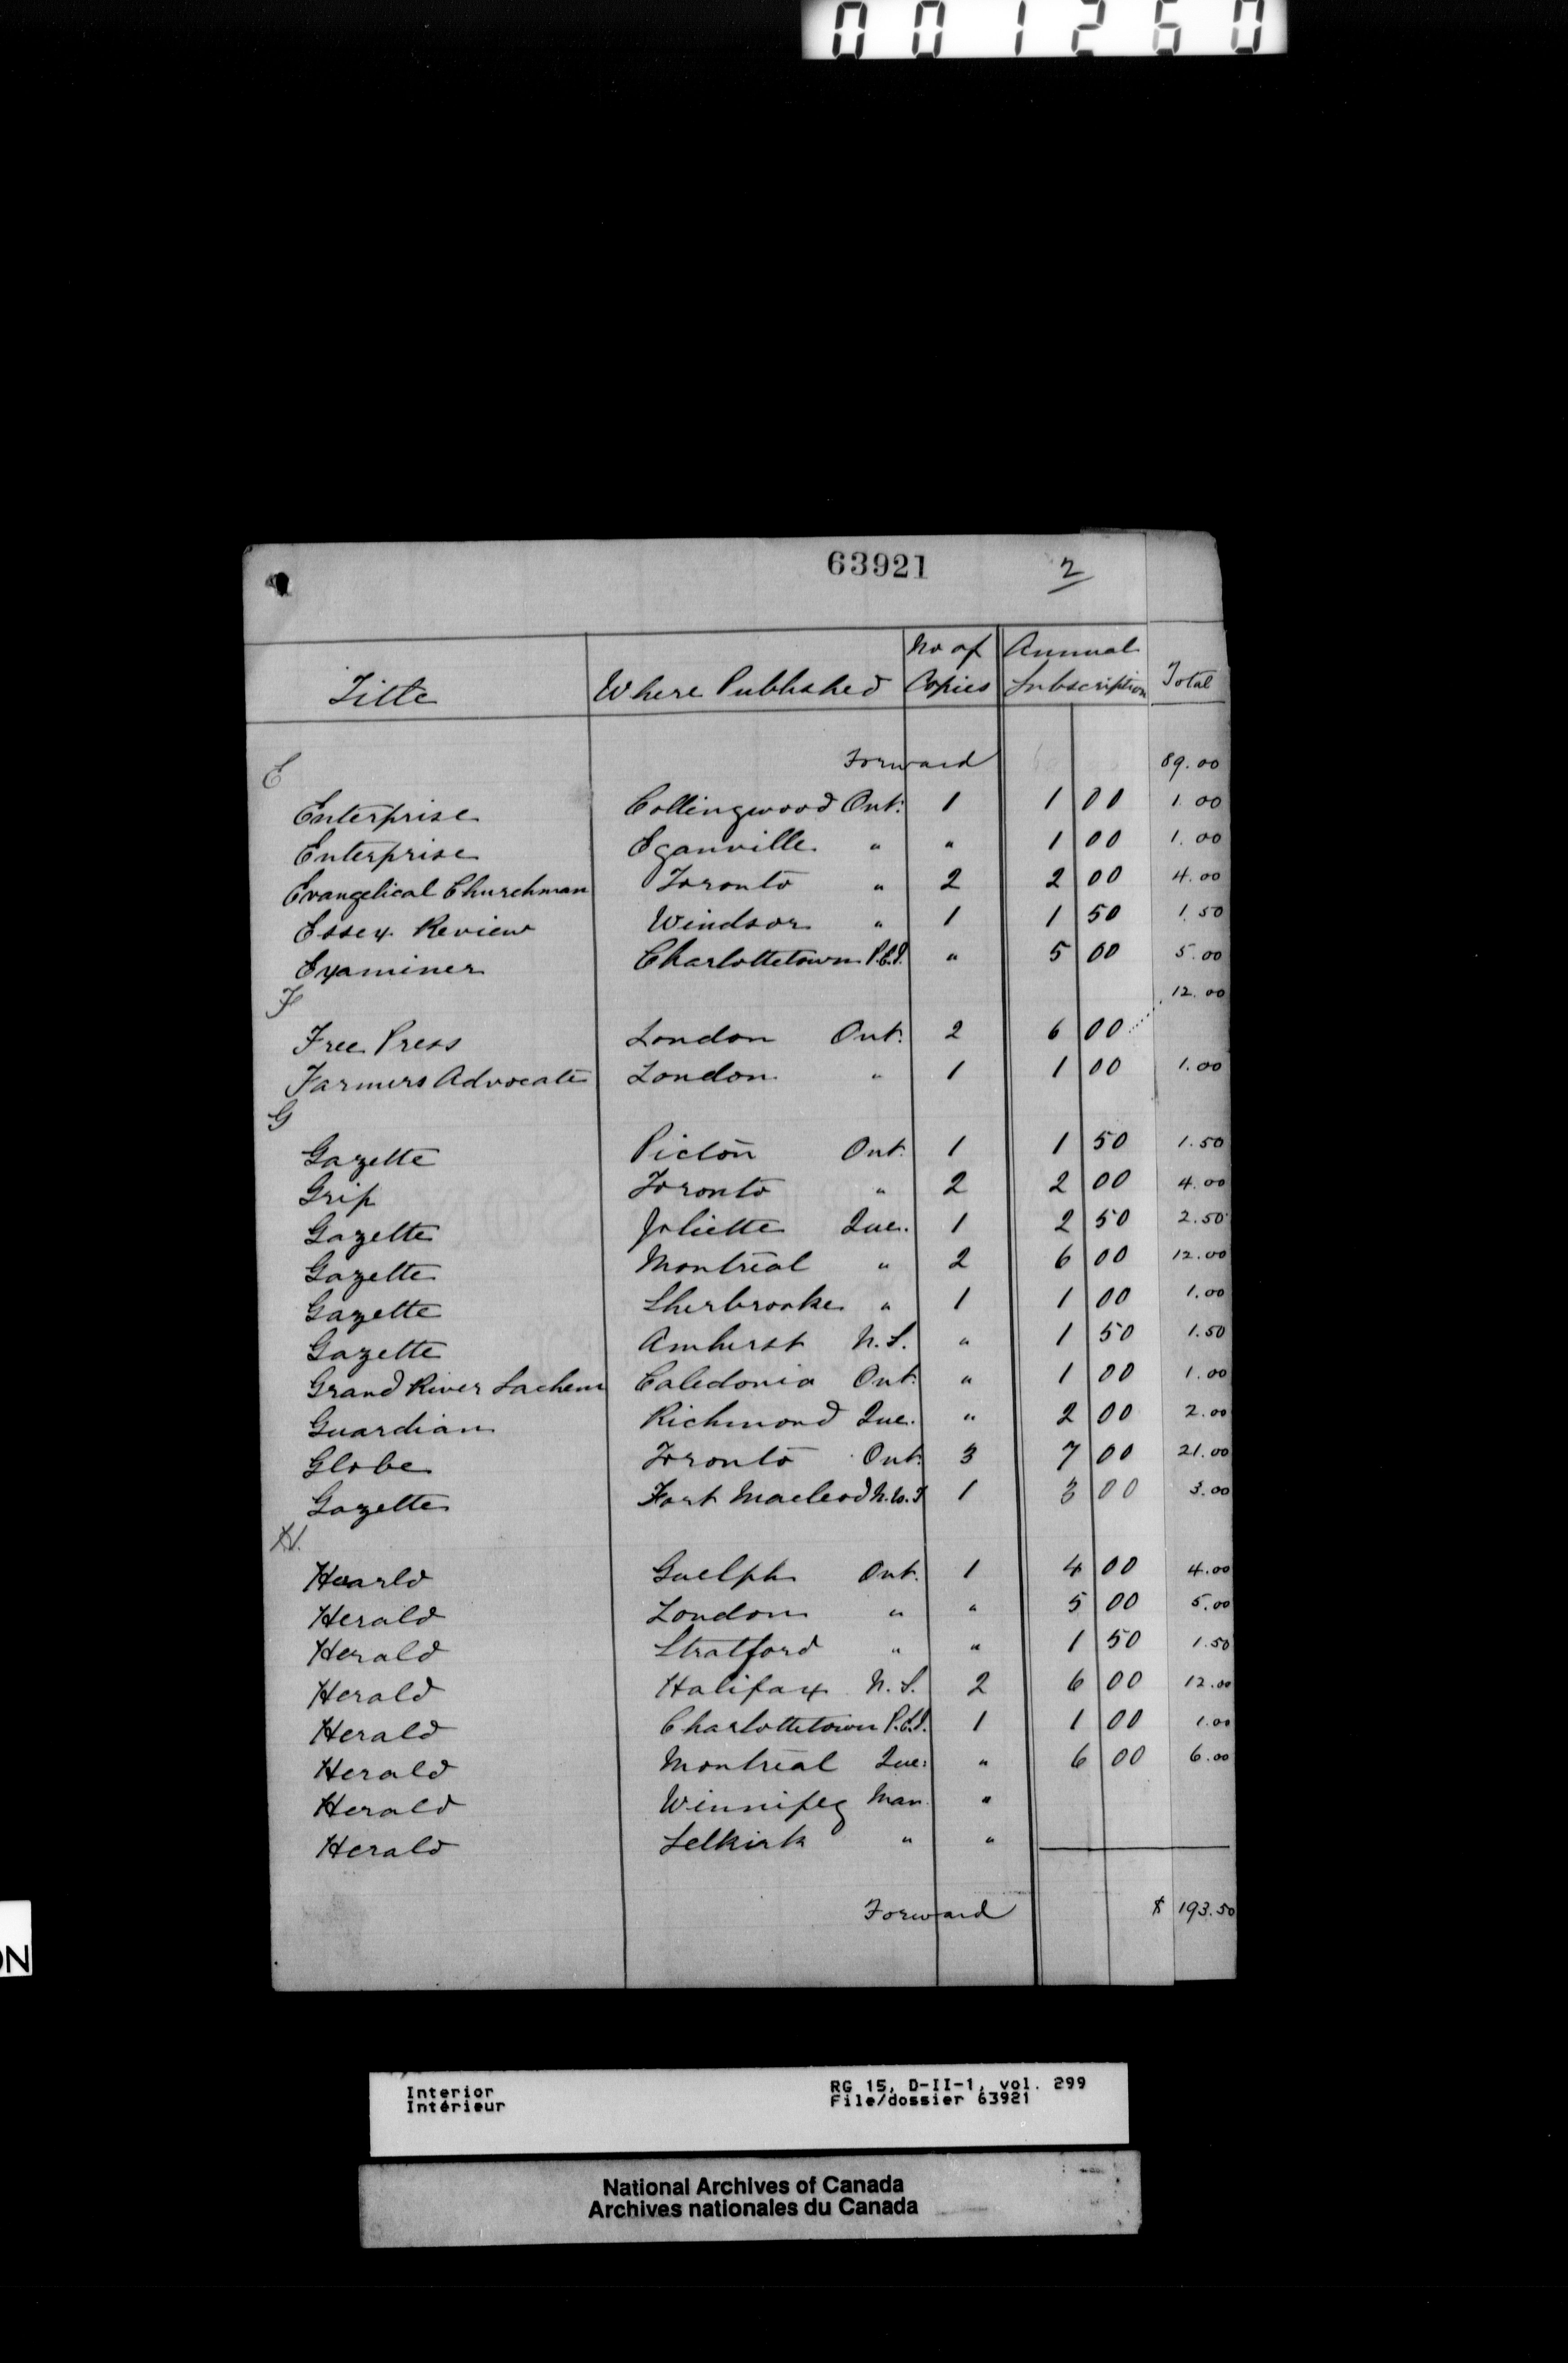 001260
63921 2
Title Where Published No of Copies Annual Subscription Total
E Forward 89.00
Enterprise Collingwood Ont. 1 1 00 1.00
Enterprise Eganville " " 1 00 1.00
Evangelical Churchman Toronto " 2 2 00 4.00
Essex Review Windsor " 1 1 50 1.50
Examiner Charlottetown P.E.I. " 5 00 5.00
F 12.00
Free Press London Ont. 2 6 00
Farmers Advocate London " 1 1 00 1.00
G
Gazette Picton Ont. 1 1 50 1.50
Grip Toronto " 2 2 00 4.00
Gazette Joliette Que. 1 2 50 2.50
Gazette Montreal " 2 6 00 12.00
Gazette Sherbrooke " 1 1 00 1.00
Gazette Amherst N.S. " 1 50 1.50
Grand River Sachem Caledonia Ont. " 1 00 1.00
Guardian Richmond Que. " 2 00 2.00
Globe Toronto Ont. 3 7 00 21.00
Gazette Fort Macleod N.W.T 1 3 00 3.00
H.
Hearld Guelph Ont. 1 4 00 4.00
Herald London " " 5 00 5.00
Herald Stratford " " 1 50 1.50
Herald Halifax N.S. 2 6 00 12.00
Herald Charlottetown P.E.I. 1 1 00 1.00
Herald Montreal Que. " 6 00 6.00
Herald Winnipeg Man. "
Herald Selkirk " "
Forward $ 193.50
ON
Interior RG 15, D-II-1, vol. 299
Intérieur File/dossier 63921
National Archives of Canada
Archives nationales du Canada